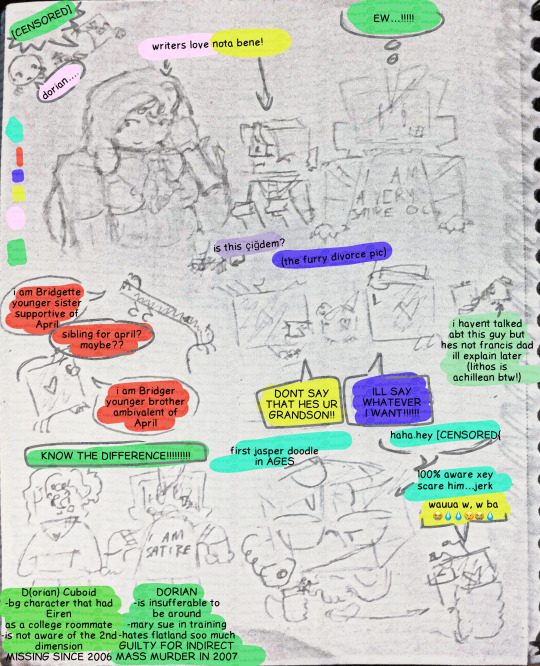 [CENSORED]
dorian....
writers love nota bene!
EW...!!!!!
I AM
A VERY
SATIRE OC
is this çiğdem?
(the furry divorce pic)
i am Bridgette
younger sister
supportive of
April
sibling for april?
maybe??
i am Bridger
younger brother
ambivalent of
April
i havent talked
abt this guy but
hes not francis dad
ill explain later
(lithos is
achillean btw!)
DONT SAY
THAT HES UR
GRANDSON!!
ILL SAY
WHATEVER
I WANT!!!!!!
haha.hey [CENSORED[
KNOW THE DIFFERENCE!!!!!!!!!
first jasper doodle
in AGES
100% aware xey
scare him...jerk
wauua w, w ba
😹💧💧😹😹💧
I AM
SATIRE
D(orian) Cuboid
-bg character that had
Eiren
as a college roommate
-is not aware of the 2nd
dimension
MISSING SINCE 2006
DORIAN
-is insufferable to
be around
-mary sue in training
-hates flatland soo much
GUILTY FOR INDIRECT
MASS MURDER IN 2007